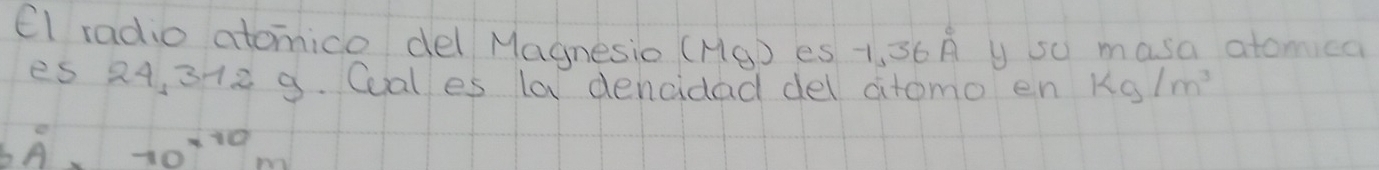 El radio atómico del Magnesio (Mg) es 1,36 Å y su masa atomica
es 24,312 g. Cual es la dencidad del átomo en Kg/m³
Å 10⁻¹⁰ m